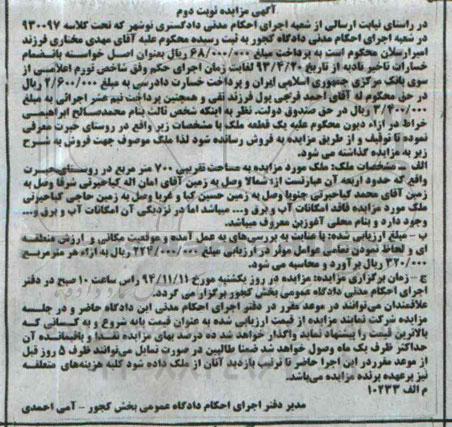 آگهی مزایده نوبت دوم
در راستای نیابت ارسالی از شعبه اجرای احکام مدنی دادگستری نوشهر که تحت کلاسه ۹۳۰۰۹۷
در شعبه اجرای احکام مدنی دادگاه کجور به ثبت رسیده محکوم علیه آقای مهدی مختاری فرزند
امیرارسلان محکوم است به پرداخت مبلغ ۶۸/۰۰۰/۰۰۰ ریال بعنوان اصل خواسته بانضمام
خسارات تاخیر تادیه از تاریخ ۹۳/۴/۳۰ لغایت زمان اجرای حکم وفق شاخص تورم اعلامی از
سوی بانک مرکزی جمهوری اسلامی ایران و پرداخت خسارت دادرسی به مبلغ ۲/۶۰۰/۰۰۰ ریال
در حق محکوم له آقای احمد فرجی پول فرزند تقی و همچنین پرداخت نیم عشر اجرائی به مبلغ
۳/۴۰۰/۰۰۰ ریال در حق صندوق دولت. نظر به اینکه شخص ثالث بنام محمدصالح ابراهیمی
خراط در ازاء دیون محکوم علیه یک قطعه ملک با مشخصات زیر واقع در روستای خیرت معرفی
نموده تا توقیف و از طریق مزایده به فروش رسانده شود لذا ملک موصوف جهت فروش به شرح
زیر به مزایده گذاشته می شود.
الف - مشخصات ملک: ملک مورد مزایده به مساحت تقریبی ۷۰۰ متر مربع در روستای خیرت
واقع که حدود اربعه آن عبارتست از: شمالا وصل به زمین آقای امان اله کیاخیرتی شرقا وصل به
زمین آقای محمد کیاخیرتی جنوبا وصل به زمین حسین کیا و غربا وصل به زمین حاجی کیاخیرتی
ملک مورد مزایده فاقد امکانات آب و برق و... میباشد اما در نزدیکی آن امکانات آب و برق و...
وجود دارد و بنام محلی آغوزبن معروف میباشد.
ب - مبلغ ارزیابی شده: با عنایت به بررسی های به عمل آمده و موقعیت مکانی و ارزش منطقه
ای و لحاظ نمودن تمامی عوامل موثر در ارزیابی مبلغ ۲۲۴/۰۰۰/۰۰۰ ریال به ازاء هر متر مربع
۳۲۰/۰۰۰ ریال برآورد و محاسبه می شود.
ج - زمان برگزاری مزایده: مزایده در روز یکشنبه مورخ ۹۴/۱۱/۱۱ راس ساعت ۱۰ صبح در دفتر
اجرای احکام مدنی دادگاه عمومی بخش کجور برگزار می گردد.
علاقمندان می توانند در موعد مقرر در دفتر اجرای احکام مدنی این دادگاه حاضر و در جلسه
مزایده شرکت نمایند مزایده از قیمت ارزیابی شده به عنوان قیمت پایه شروع و به کسانی که
بالاترین قیمت را پیشنهاد نماید واگذار خواهد شد ده درصد بهای مزایده نقدا و باقیمانده آن
حداکثر ظرف یک ماه وصول خواهد شد ضمنا طالبین در صورت تمایل می توانند ظرف ۵ روز قبل
از موعد مقرر در این اجرا حاضر تا ترتیب بازدید آنان از ملک داده شود کلیه هزینه های متعلقه
نیز برعهده برنده مزایده می باشد.
م الف ۱۰۲۳۳
مدیر دفتر اجرای احکام دادگاه عمومی بخش کجور - آمی احمدی